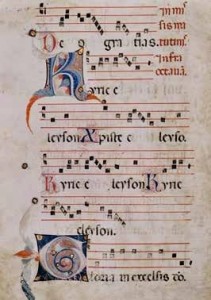 De o gra tias.
infra
octava.
Kyrie e
leyson Xpiste e leyso.
Kyrie e leyson Kyrie
eleyson.
Gloria in excelsis do.